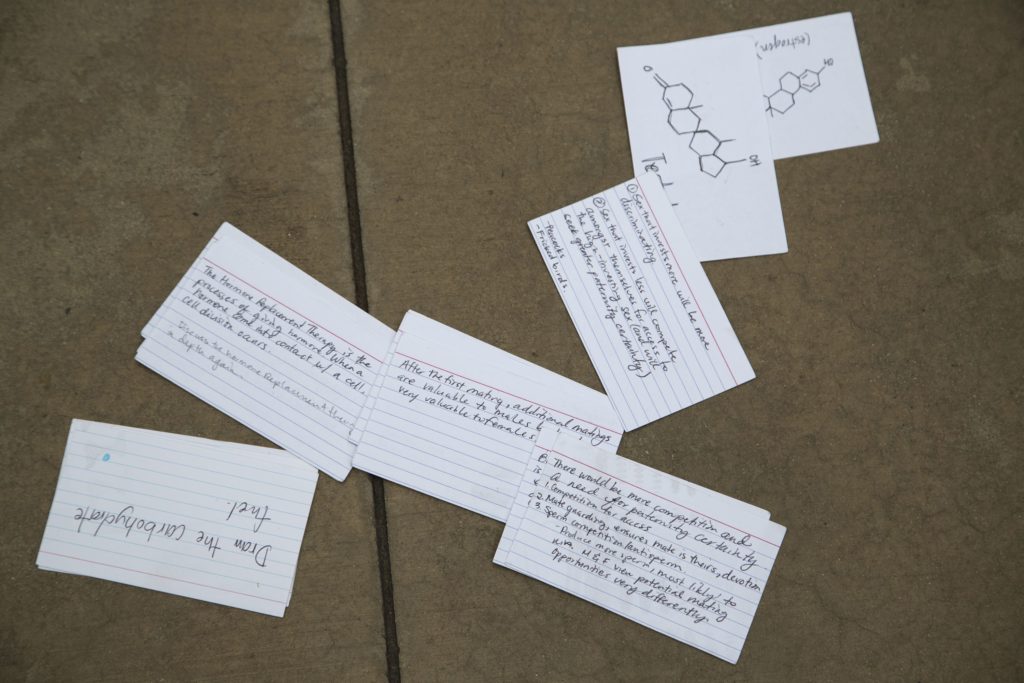 (estrogen)
OH
O
OH
① Sex that invests more will be more
discriminating
② Sex that invests less will compete
amongst themselves for access to
the high-investing sex (and will
seek greater paternity certainty)
Peacocks
- Friked birds
The Hormone Replacement Therapy is the
processes of giving hormone when a
hormone come into contact w/ a cell,
cell division occurs.
Discuss the hormone replacement
in depth again.
After the first mating, additional matings
are valuable to males
very valuable to females
B. There would be more competition and
is a need for paternity certainty
1. Competition for access
2. Mate guarding, ensures mate is theirs, devotion
3. Sperm competition/antisperm
- Produce more sperm, most likely to
win. M & F view potential mating
opportunities very differently.
Draw the Carbohydrate
fuel.